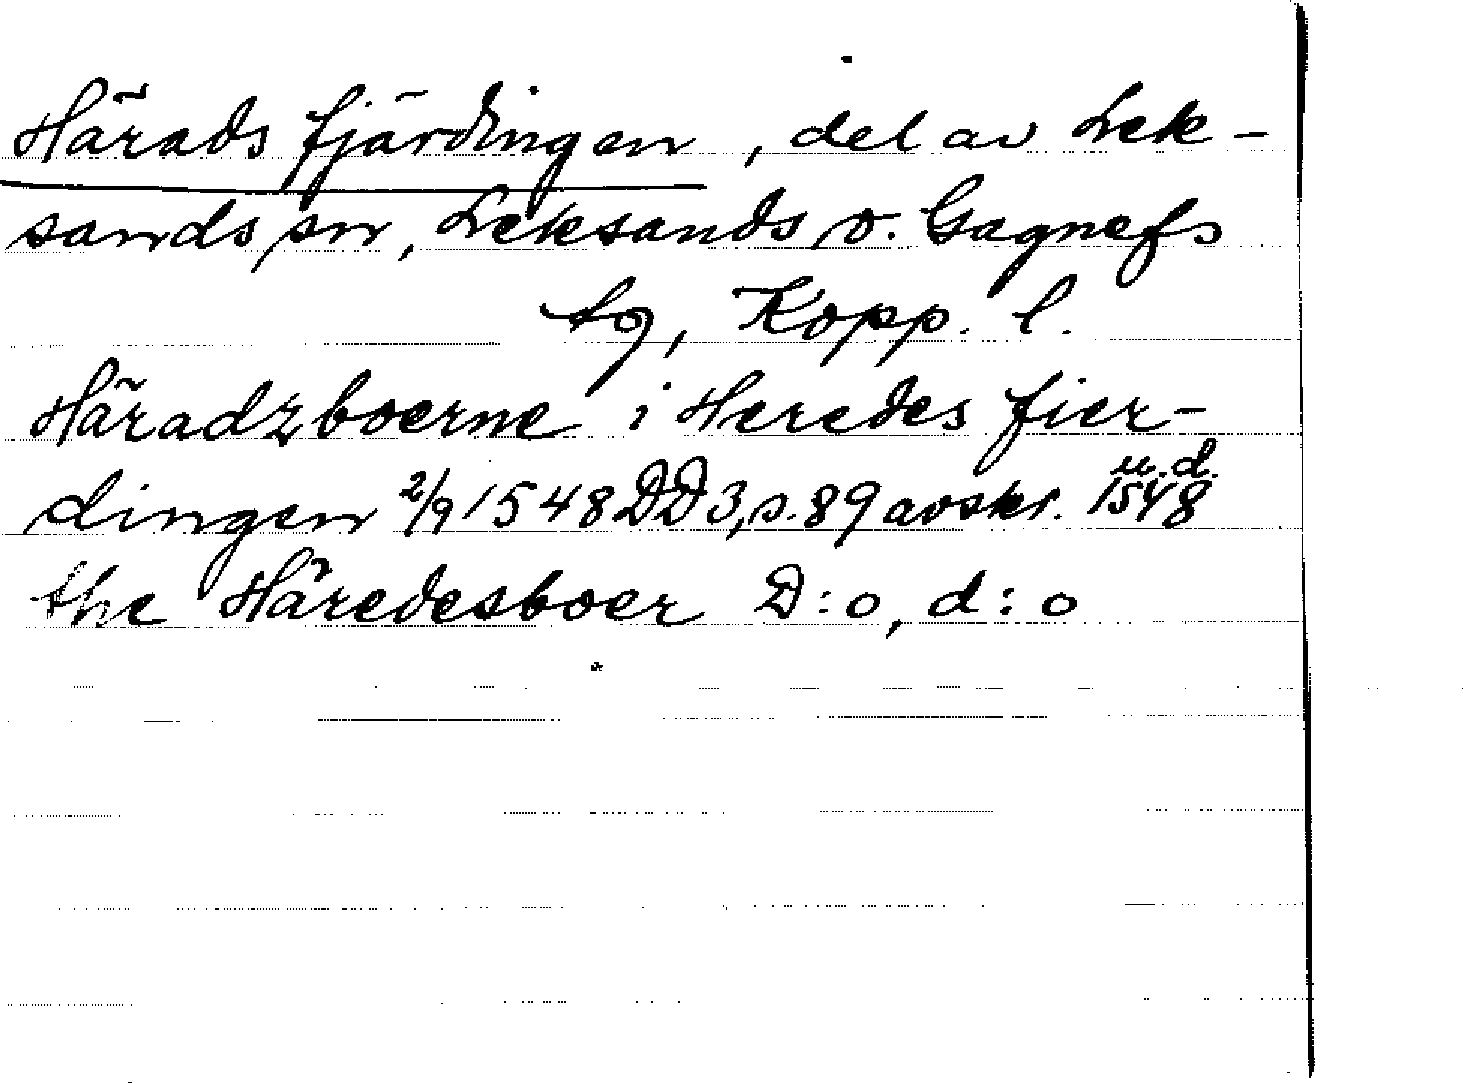 Härads fjärdingen, del av Lek-
sands sn, Leksands o. Gagnefs
tg, Kopp. l.
Häradzboerne i Heredes fier-
dingen 2/9 1548 DD3, s. 89 avskr. u.d. 1548
the Häredesboer D:o, d:o